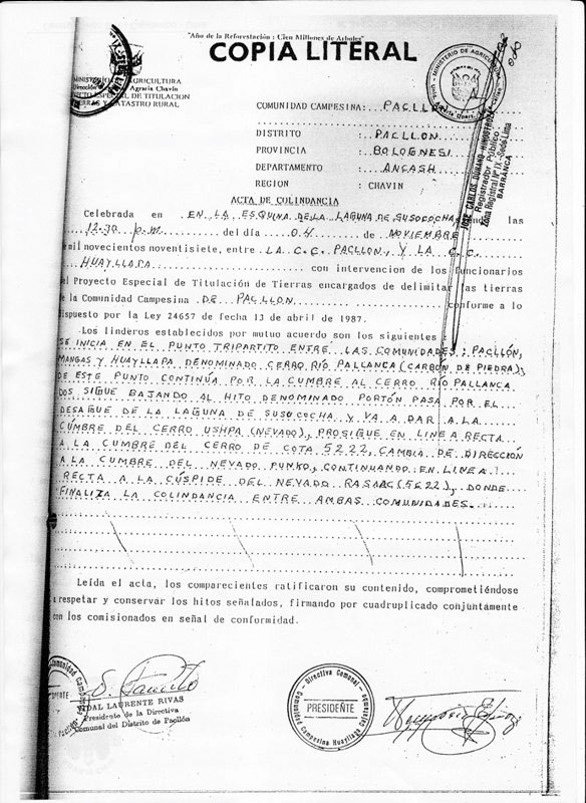 "Año de la Reforestación : Cien Millones de Arboles"
COPIA LITERAL
AGRICULTURA
Agraria Chavín
ESPECIAL DE TITULACION
CATASTRO RURAL
MINISTERIO DE AGRICULTURA
COMUNIDAD CAMPESINA: PACLLON
DISTRITO : PACLLON
PROVINCIA : BOLOGNESI
DEPARTAMENTO : ANCASH
REGION : CHAVIN
JOSE CARLOS
Registrador Público
Zona Registral Nº IX - Sede Lima
BARRANCA
ACTA DE COLINDANCIA
Celebrada en EN LA ESQUINA DE LA LAGUNA DE SUSOCOCHA las
12.30 p.m. del día 04 de NOVIEMBRE
mil novecientos noventisiete, entre LA C.C. PACLLON, Y LA C.C.
HUAYLLAPA con intervencion de los funcionarios
del Proyecto Especial de Titulación de Tierras encargados de delimitar las tierras
de la Comunidad Campesina DE PACLLON conforme a lo
dispuesto por la Ley 24657 de fecha 13 de abril de 1987.
Los linderos establecidos por mutuo acuerdo son los siguientes :
SE INICIA EN EL PUNTO TRIPARTITO ENTRE LAS COMUNIDADES; PACLLÓN,
MANGAS Y HUAYLLAPA DENOMINADO CERRO RÍO PALLANCA (CARBON DE PIEDRA),
DE ESTE PUNTO CONTINÚA POR LA CUMBRE AL CERRO RÍO PALLANCA
DOS SIGUE BAJANDO AL HITO DENOMINADO PORTÓN PASA POR EL
DESAGUE DE LA LAGUNA DE SUSUCOCHA Y VA A DAR A LA
CUMBRE DEL CERRO USHPA (NEVADO), PROSIGUE EN LINEA RECTA
A LA CUMBRE DEL CERRO DE COTA 5222, CAMBIA DE DIRECCIÓN
A LA CUMBRE DEL NEVADO PUNKO, CONTINUANDO EN LINEA
RECTA A LA CÚSPIDE DEL NEVADO RASAC (5622), DONDE
FINALIZA LA COLINDANCIA ENTRE AMBAS COMUNIDADES.
Leída el acta, los comparecientes ratificaron su contenido, comprometiéndose
a respetar y conservar los hitos señalados, firmando por cuadruplicado conjuntamente
con los comisionados en señal de conformidad.
VIDAL LAURENTE RIVAS
Presidente de la Directiva
Comunal del Distrito de Pacllón
Directiva Comunal
PRESIDENTE
Comunidad Campesina Huayllapa